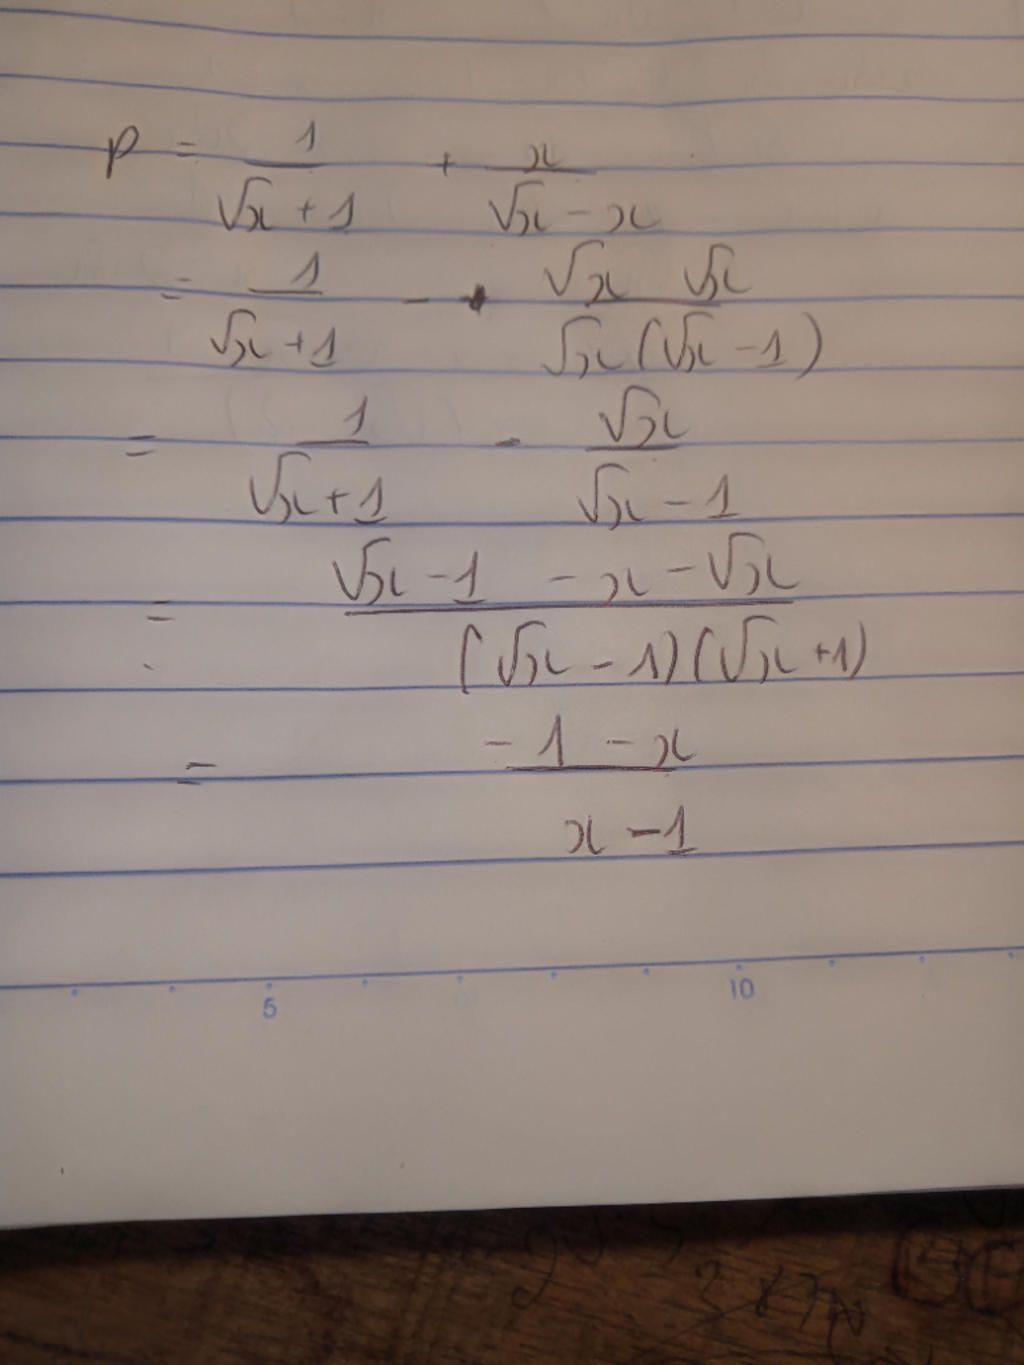 P = 1/(√x + 1) + x/(√x - x)
= 1/(√x + 1) - (√x √x)/(√x(√x - 1))
= 1/(√x + 1) - √x/(√x - 1)
= (√x - 1 - x - √x)/((√x - 1)(√x + 1))
= (-1 - x)/(x - 1)
5 10